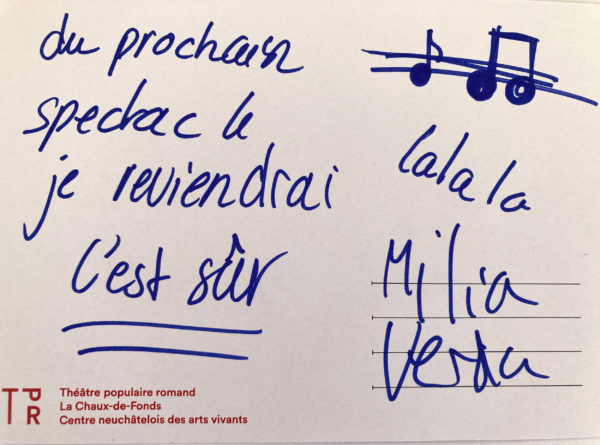 du prochain
spectacle
je reviendrai
c'est sûr
lalala
Milia
Verda
TPR
Théâtre populaire romand
La Chaux-de-Fonds
Centre neuchâtelois des arts vivants